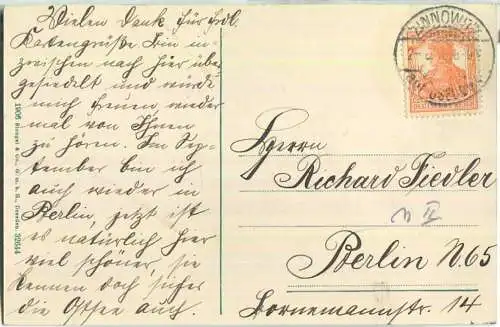 Vielen Dank für frdl.
Kartengrüße. Bin in-
zwischen nach hier über
gesiedelt und würde
mich freuen, wieder
mal von Ihnen
zu hören. Im Sep-
tember bin ich
auch wieder in
Berlin, jetzt ist
es natürlich hier
viel schöner, sie
kennen doch sicher
die Ostsee auch.
1906 Stengel & Co., G. m. b. H., Dresden. 32644
ZINNOWITZ
Herrn
Richard Fiedler
II
Berlin N. 65
Bornemannstr. 14